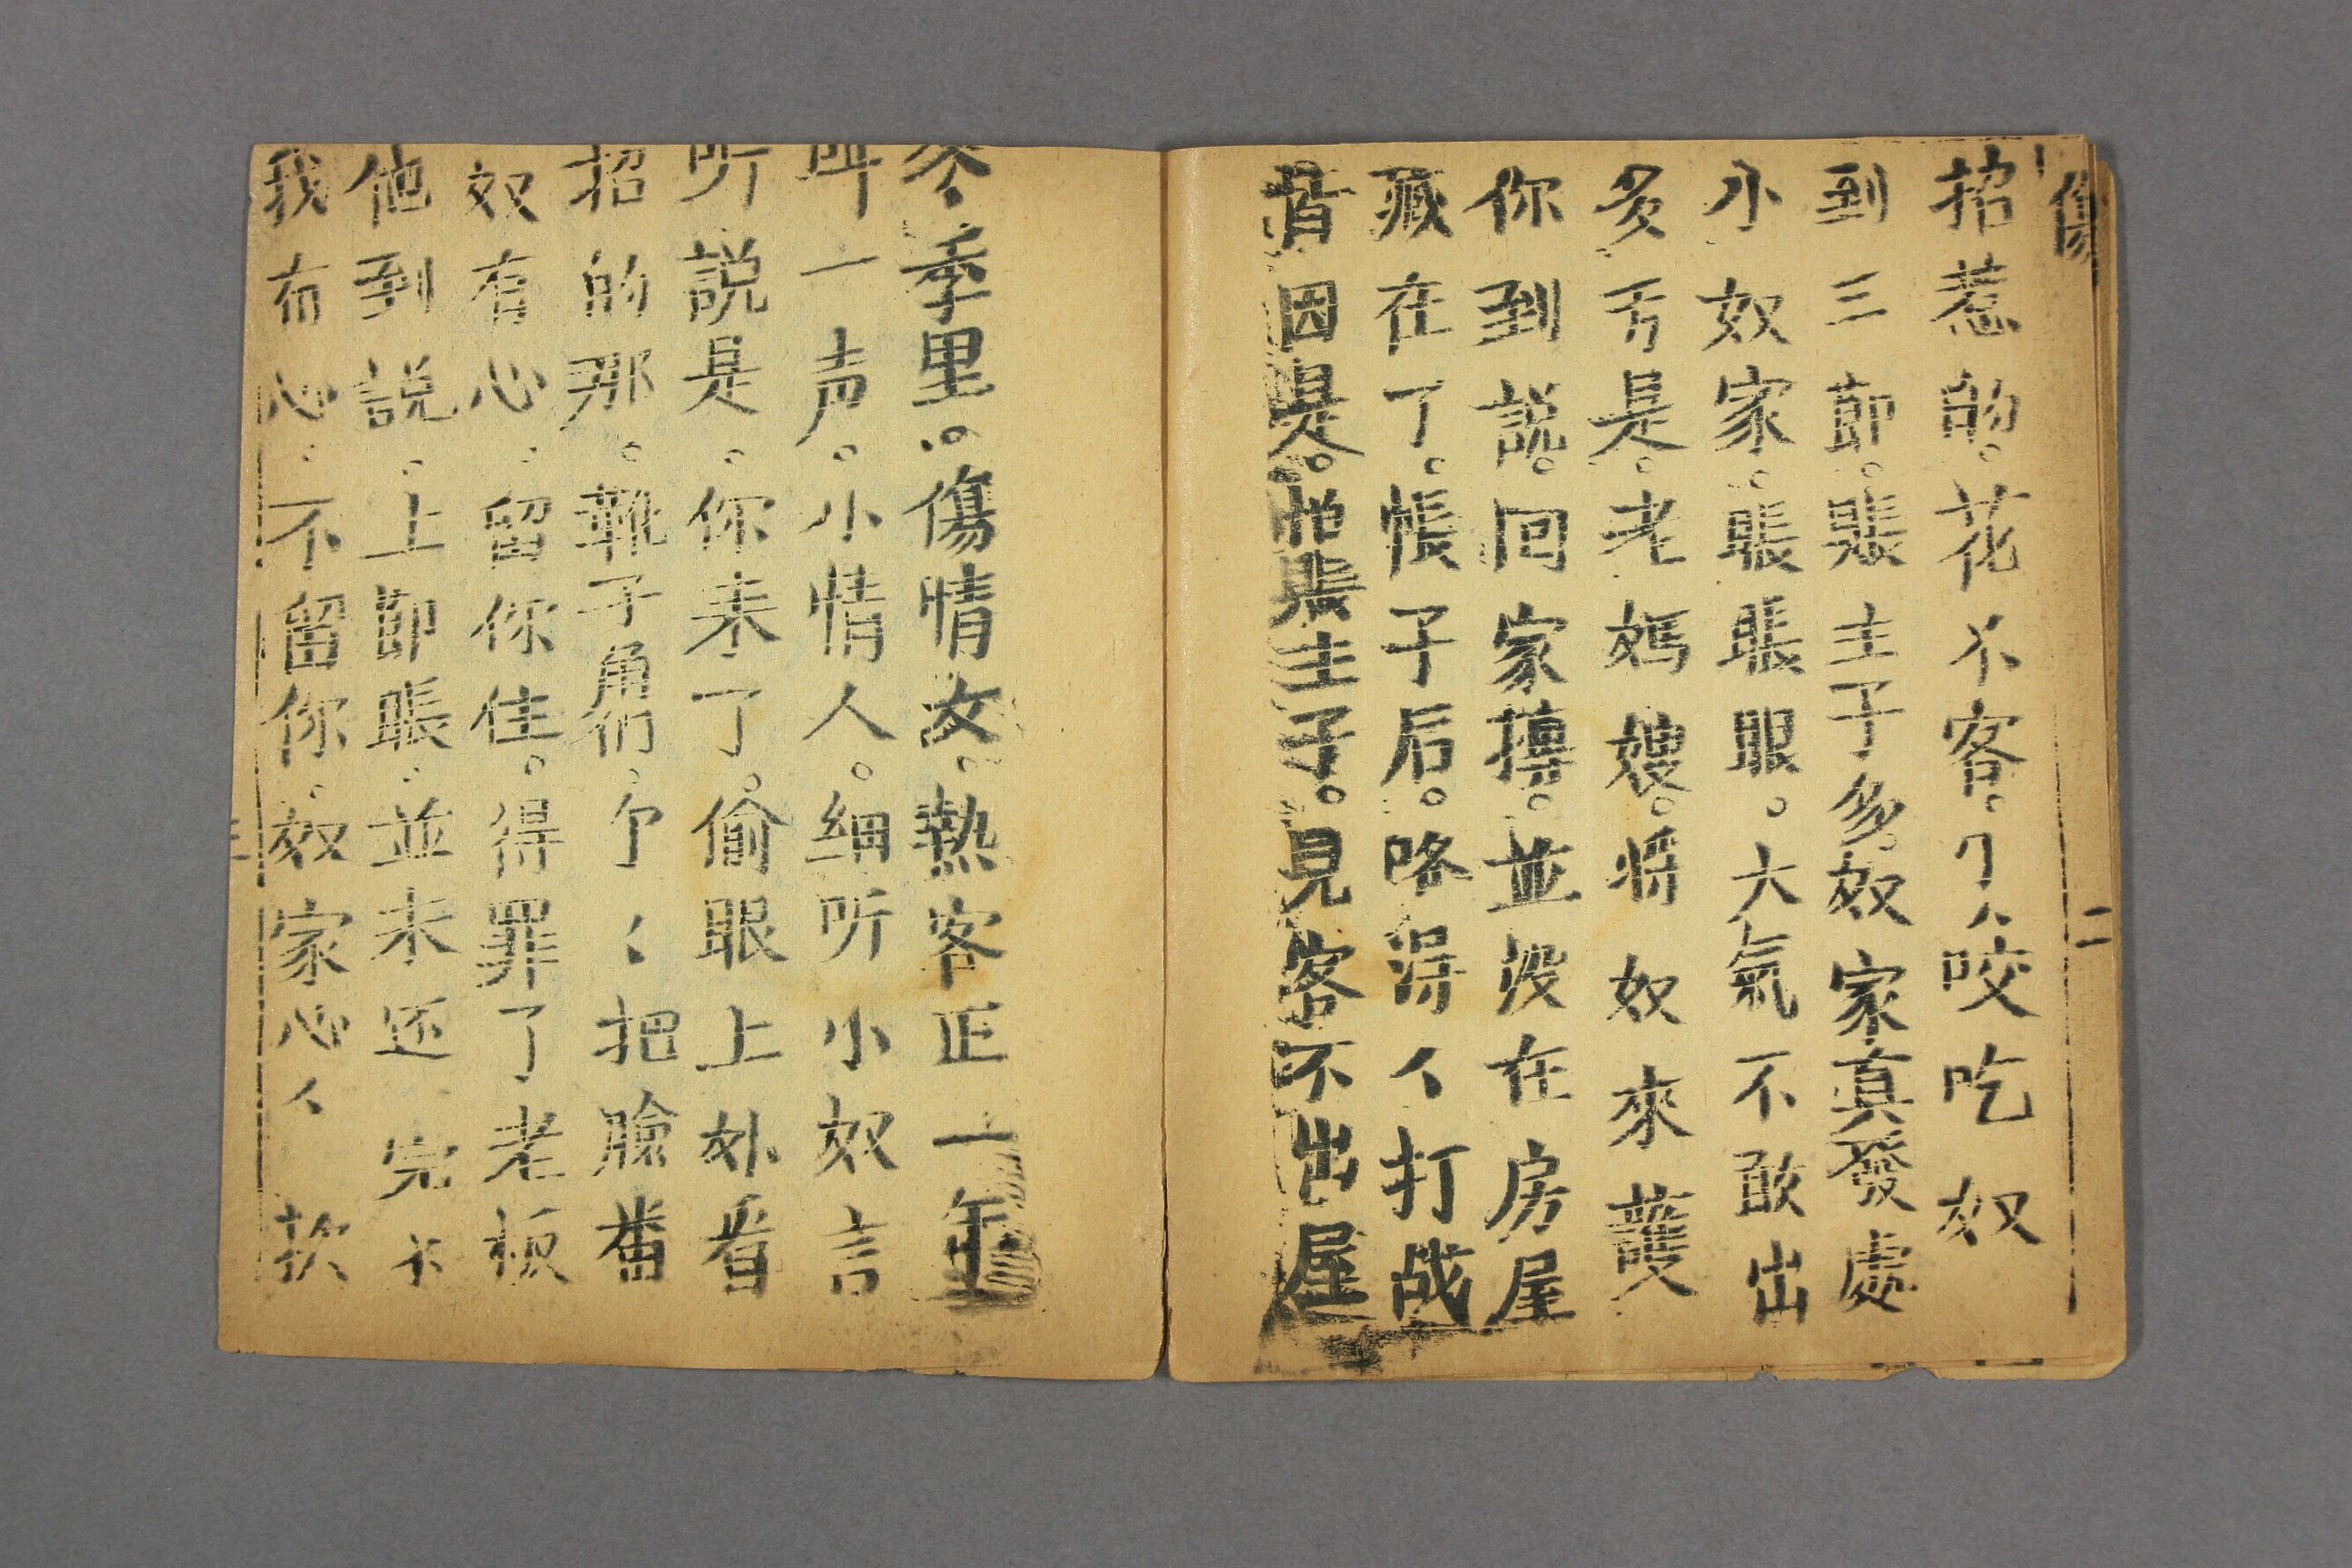 傷
二
招惹的。花不客。刁人咬吃奴
到三節。賬主子多。奴家真發處
小奴家。賬賬眼。大氣不敢出
多亐是。老媽嫂。将奴來護
你到説。回家摶。並没在房屋
藏在了。帳子后。咯得人打战
首因是。怕賬主子。見客不出屋
冬季里。傷情女。熱客正一年
呌一声。小情人。細听小奴言
听説是。你来了。偷眼上外看
招的那。靴子角們。个〻把臉畨
奴有心。留你住。得罪了老板
他到説。上節賬。並未还完
我有心。不留你。奴家心 欤